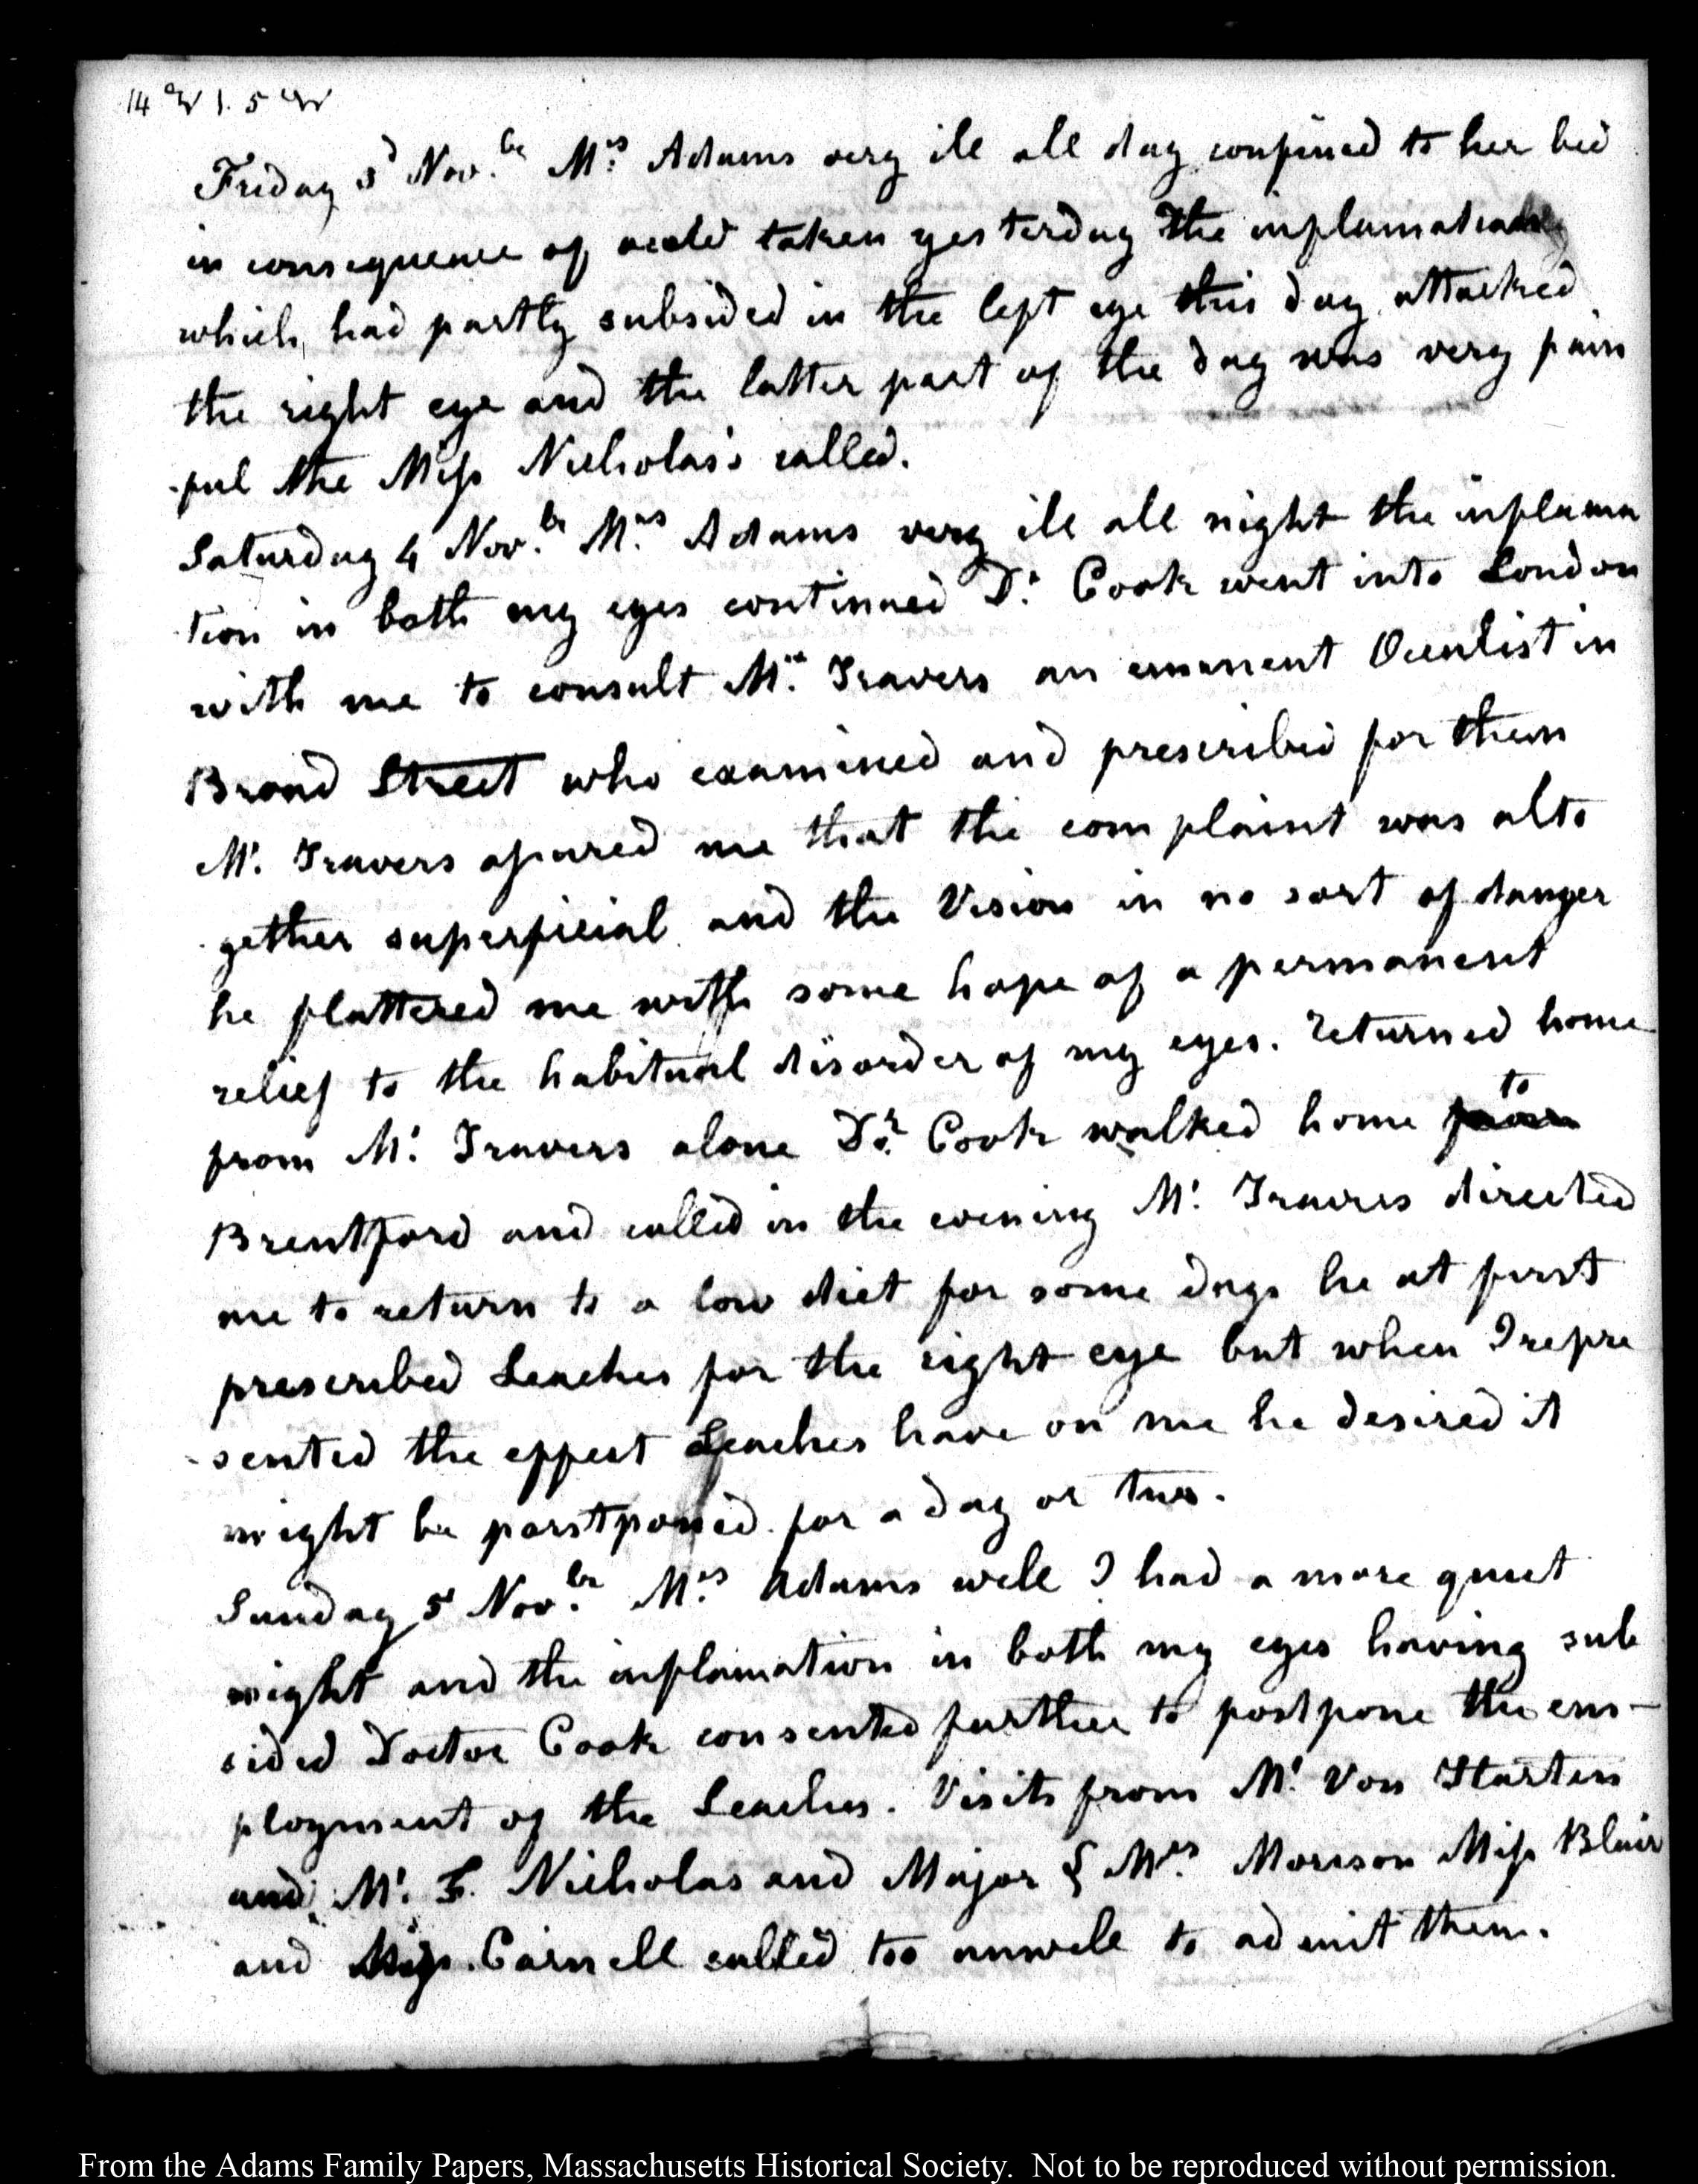 Friday 3d Novbr Mrs Adams very ill all day confined to her bed
in consequence of a cold taken yesterday The inflamation
which, had partly subsided in the left eye this day attacked
the right eye and the latter part of the day was very pain
-ful the Miss Nicholas's called.
Saturday 4 Nov.br Mrs Adams very ill all night the inflama
-tion in both my eyes continued Dr Cook went into London
with me to consult Mr Travers an eminent Oculist in
Broad Street who examined and prescribed for them
Mr. Travers assured me that the complaint was alto
-gether superficial and the Vision in no sort of danger
he flattered me with some hope of a permanent
relief to the habitual disorder of my eyes. returned home
from Mr. Travers alone Dr. Cook walked home from to
Brentford and called in the evening Mr. Travers directed
me to return to a low diet for some days he at first
prescribed Leaches for the right eye but when I repre
-sented the effect Leaches have on me he desired it
might be postponed for a day or two.
Sunday 5 Nov.br Mrs Adams well I had a more quiet
night and the inflamation in both my eyes having sub
sided Doctor Cook consented further to postpone the em-
ployment of the Leaches. Visits from Mr. Von Harten
and Mr. Nicholas and Major & Mrs Morison Miss Blair
and Miss Carnell called too unwell to admit them.
From the Adams Family Papers, Massachusetts Historical Society. Not to be reproduced without permission.